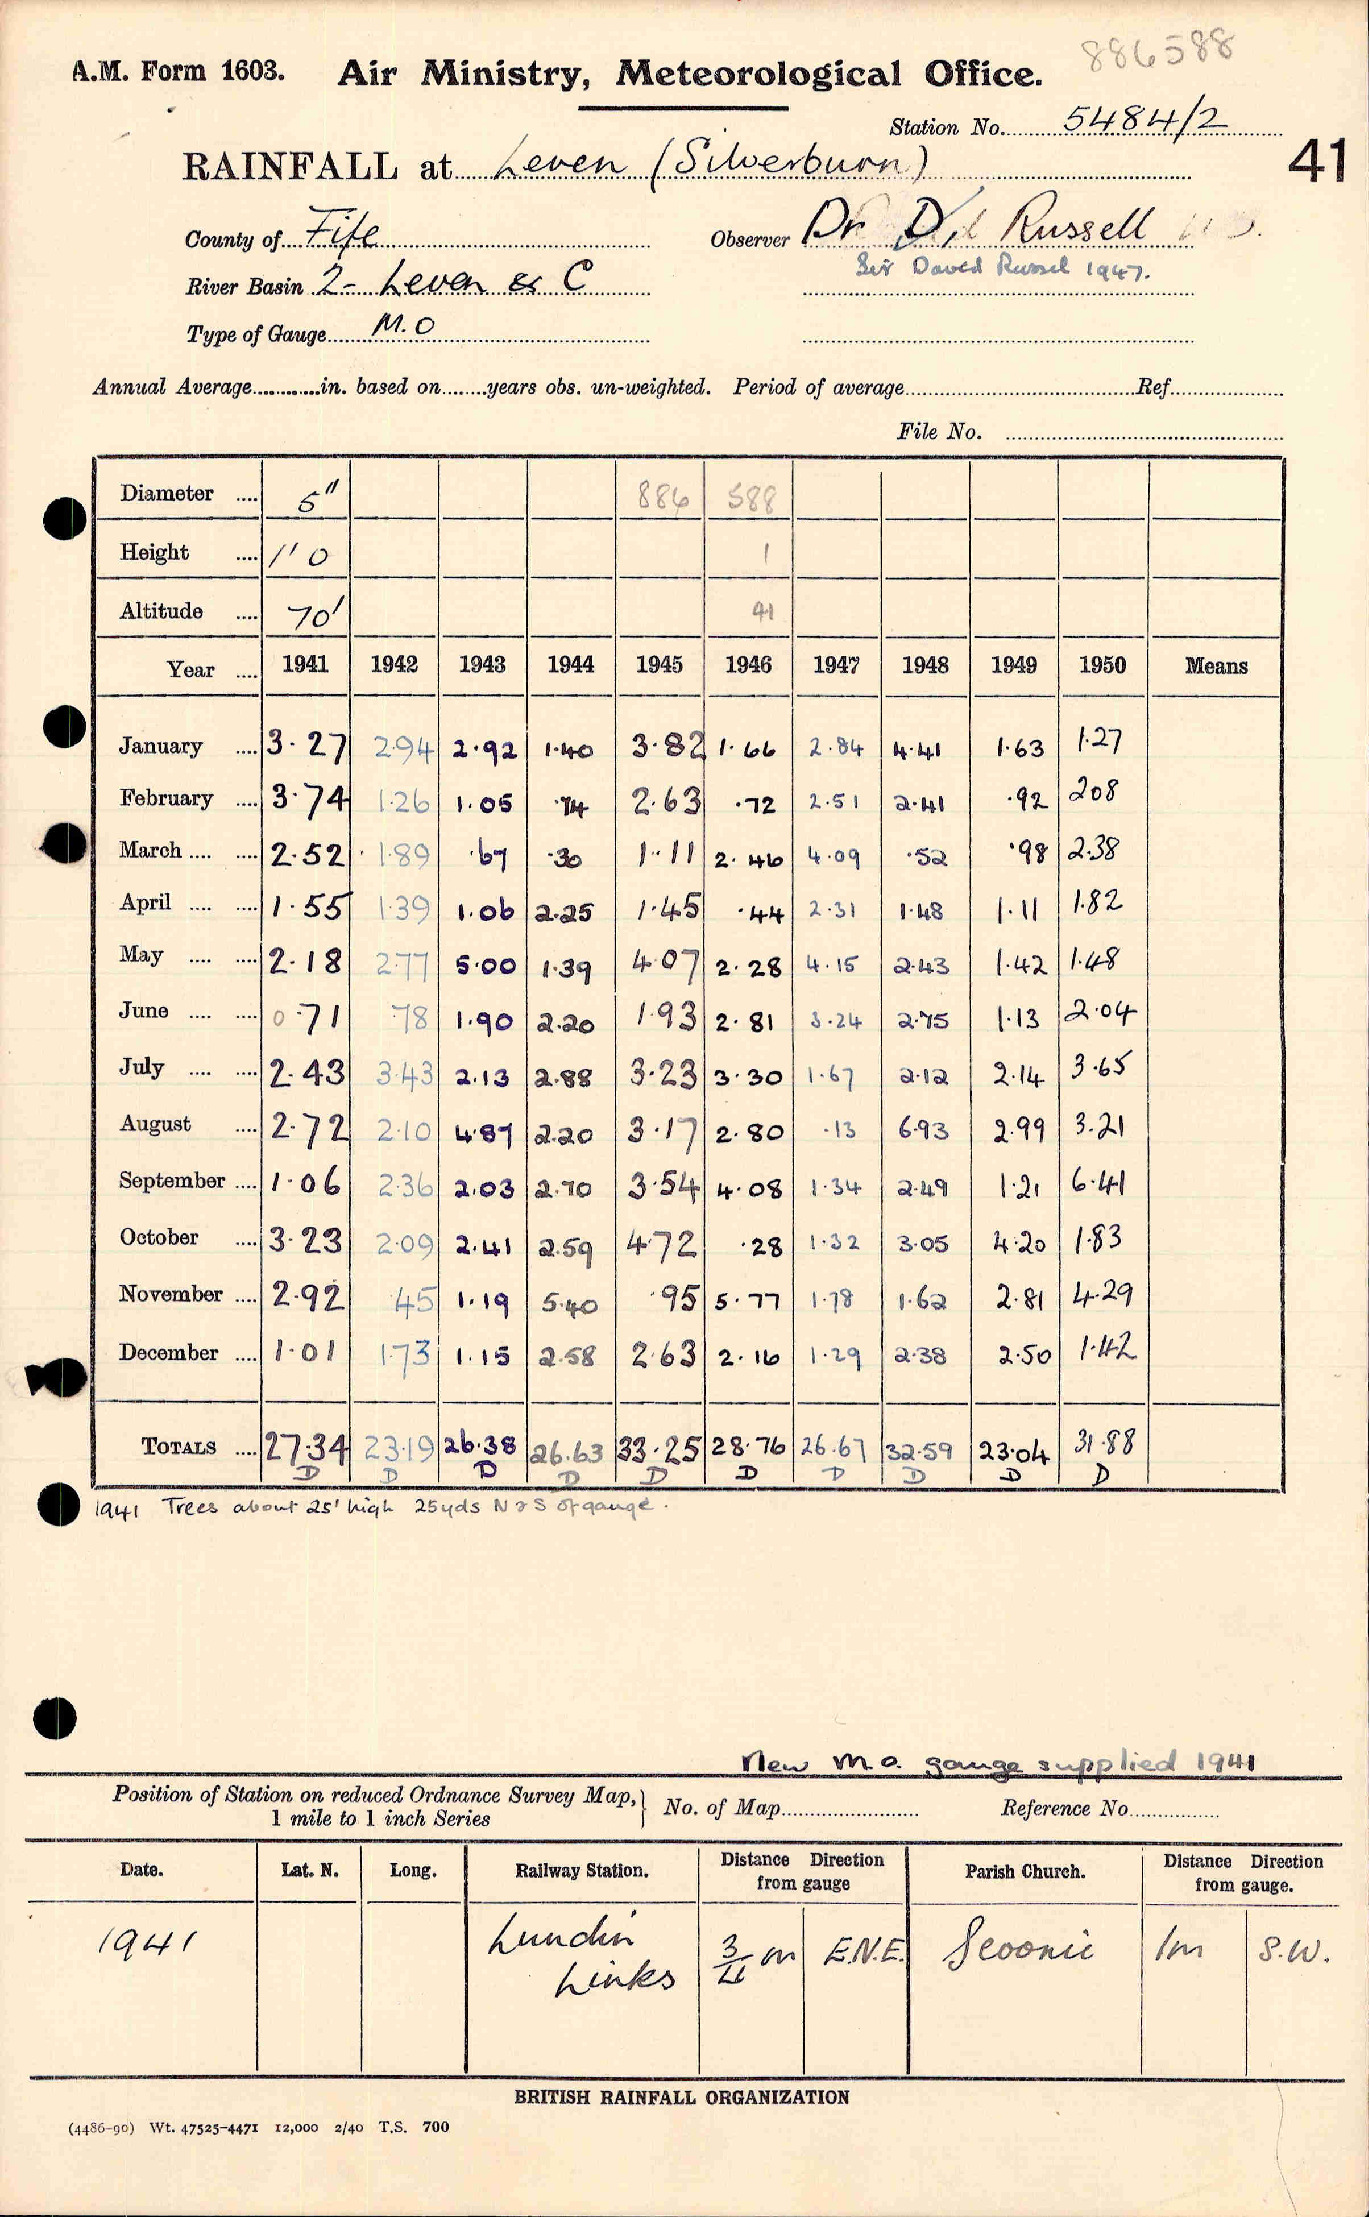 886588
A.M. Form 1603. Air Ministry, Meteorological Office.
Station No. 5484/2
41
RAINFALL at Leven (Silverburn)
County of Fife Observer Dr Russell
River Basin 2- Leven & C Sir David Russel 1947.
Type of Gauge M.O
Annual Average in. based on years obs. un-weighted. Period of average Ref.
File No.
Diameter .... 5" 886 588
Height .... 1' 0 1
Altitude .... 70' 41
Year .... 1941 1942 1943 1944 1945 1946 1947 1948 1949 1950 Means
January .... 3.27 2.94 2.92 1.40 3.82 1.66 2.84 4.41 1.63 1.27
February .... 3.74 1.26 1.05 .74 2.63 .72 2.51 2.41 .92 208
March .... .... 2.52 1.89 .67 .30 1.11 2.46 4.09 .52 .98 2.38
April .... .... 1.55 1.39 1.06 2.25 1.45 .44 2.31 1.48 1.11 1.82
May .... .... 2.18 2.77 5.00 1.39 4.07 2.28 4.15 2.43 1.42 1.48
June .... .... 0.71 78 1.90 2.20 1.93 2.81 3.24 2.75 1.13 2.04
July .... .... 2.43 3.43 2.13 2.88 3.23 3.30 1.67 2.12 2.14 3.65
August .... 2.72 2.10 4.87 2.20 3.17 2.80 .13 6.93 2.99 3.21
September .... 1.06 2.36 2.03 2.70 3.54 4.08 1.34 2.49 1.21 6.41
October .... 3.23 2.09 2.41 2.59 4.72 .28 1.32 3.05 4.20 1.83
November .... 2.92 45 1.19 5.40 .95 5.77 1.78 1.62 2.81 4.29
December .... 1.01 1.73 1.15 2.58 2.63 2.16 1.29 2.38 2.50 1.42
TOTALS .... 27.34 23.19 26.38 26.63 33.25 28.76 26.67 32.59 23.04 31.88
D D D D D D D D D D
1941 Trees about 25' high 25yds N & S of gauge.
New M.O. gauge supplied 1941
Position of Station on reduced Ordnance Survey Map, No. of Map Reference No.
1 mile to 1 inch Series
Date. Lat. N. Long. Railway Station. Distance Direction from gauge Parish Church. Distance Direction from gauge.
1941 Lundin Links 3/4 m E.N.E. Scoonie 1m S.W.
BRITISH RAINFALL ORGANIZATION
(4486-90) Wt. 47525-4471 12,000 2/40 T.S. 700